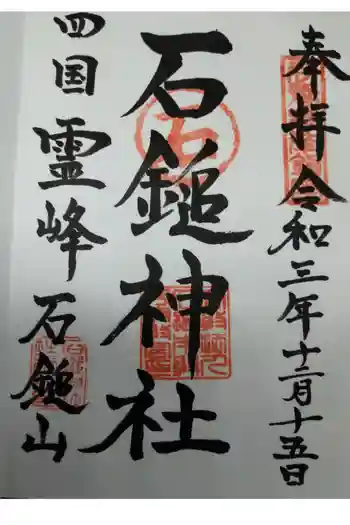 奉拝 令和三年十二月十五日
石鎚神社
四国 霊峰 石鎚山